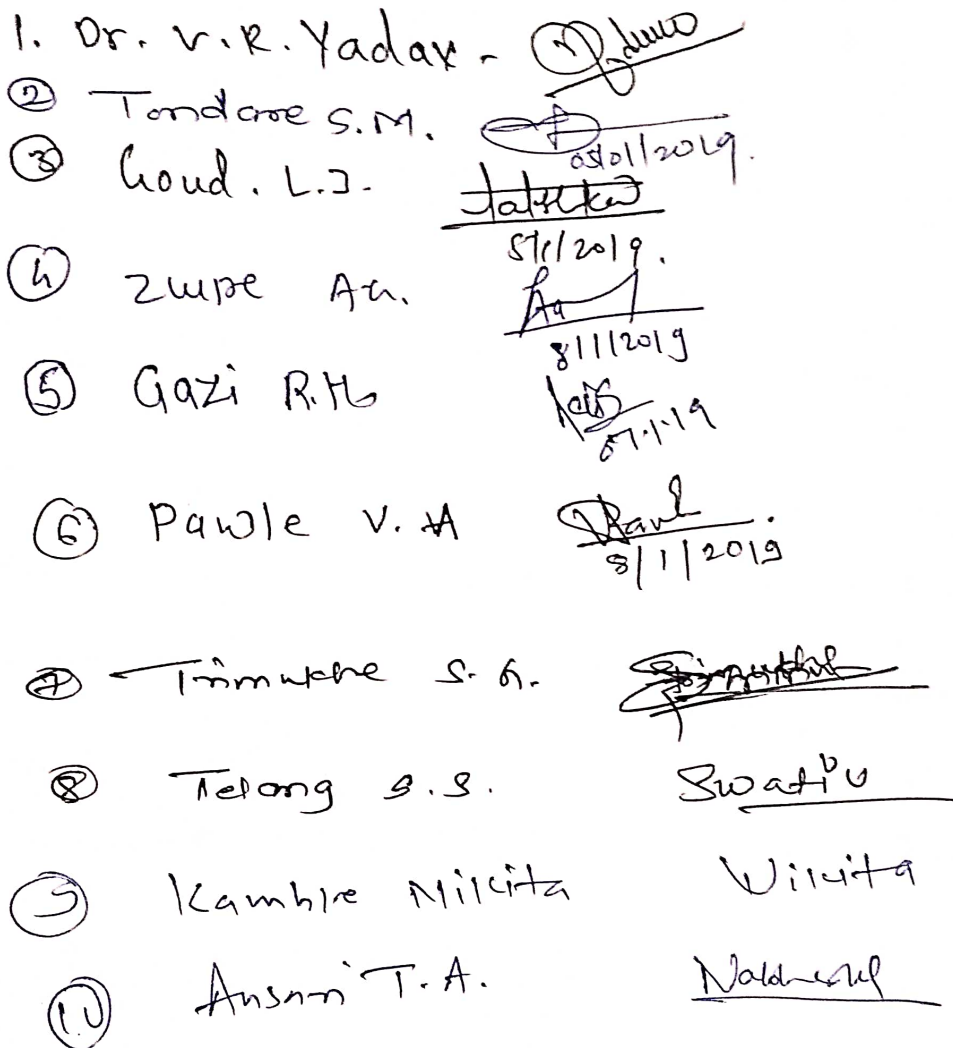 1. Dr. V.R. Yadav -
② Tondare S.M.
05/01/2019.
③ Goud. L.J.
5/1/2019.
④ Zulpe A.
8/1/2019
⑤ Gazi R.H
07.1.19
⑥ Pawle V.A
8/1/2019
⑦ Trimukhe S. G.
⑧ Telang S.S.
Swati
⑨ Kamble Nikita Nikita
⑩ Ansari T.A.